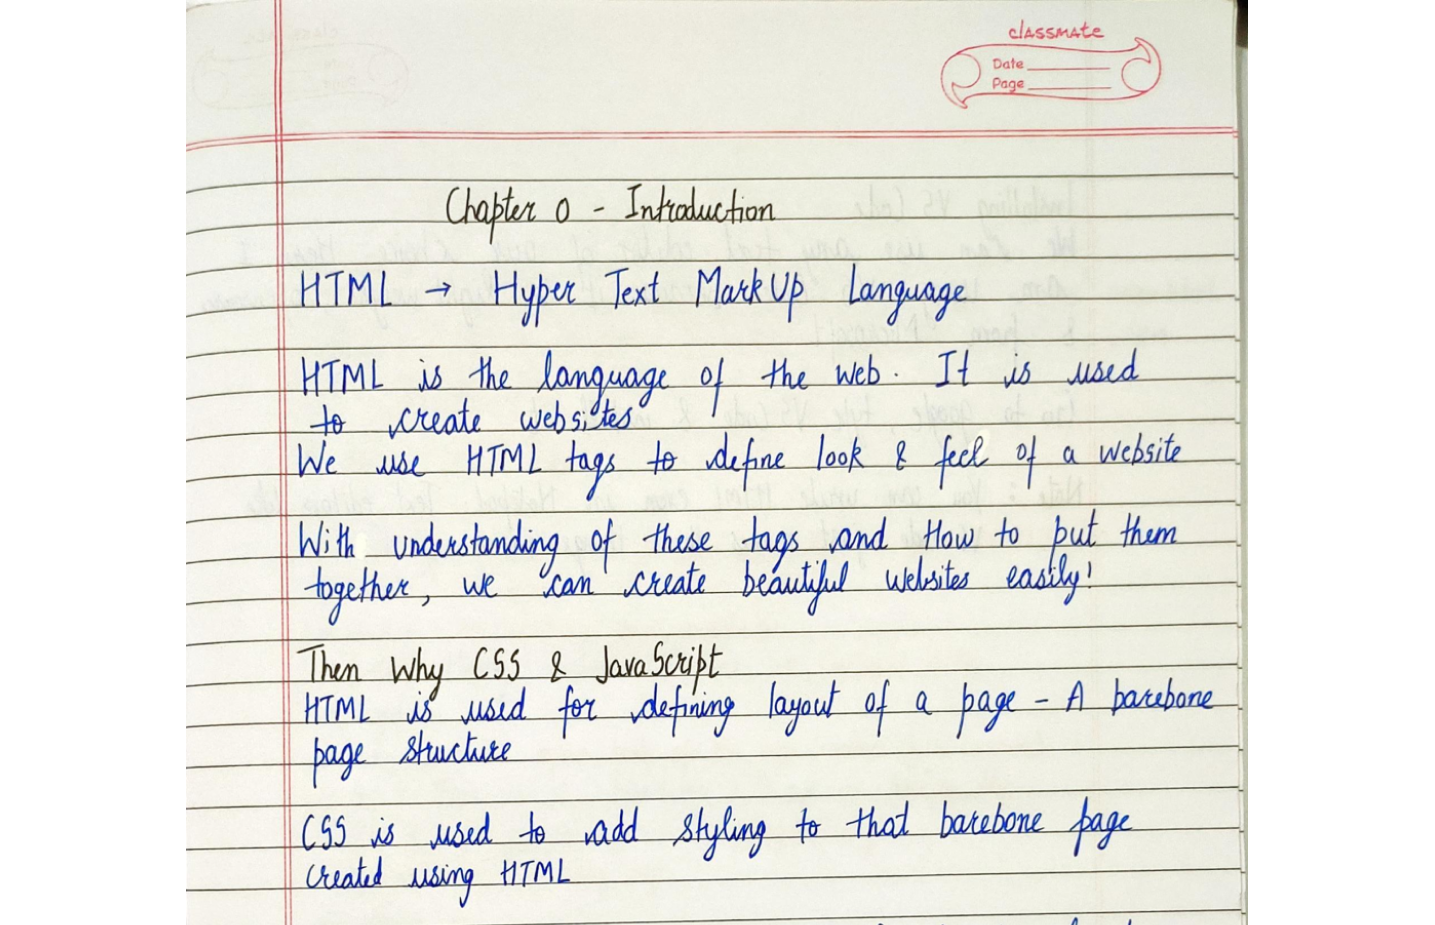 classmate
Date
Page
Chapter 0 - Introduction
HTML → Hyper Text MarkUp Language
HTML is the language of the web. It is used
to create websites
We use HTML tags to define look & feel of a website
With understanding of these tags and How to put them
together, we can create beautiful websites easily!
Then Why CSS & JavaScript
HTML is used for defining layout of a page - A barebone
page structure
CSS is used to add styling to that barebone page
created using HTML